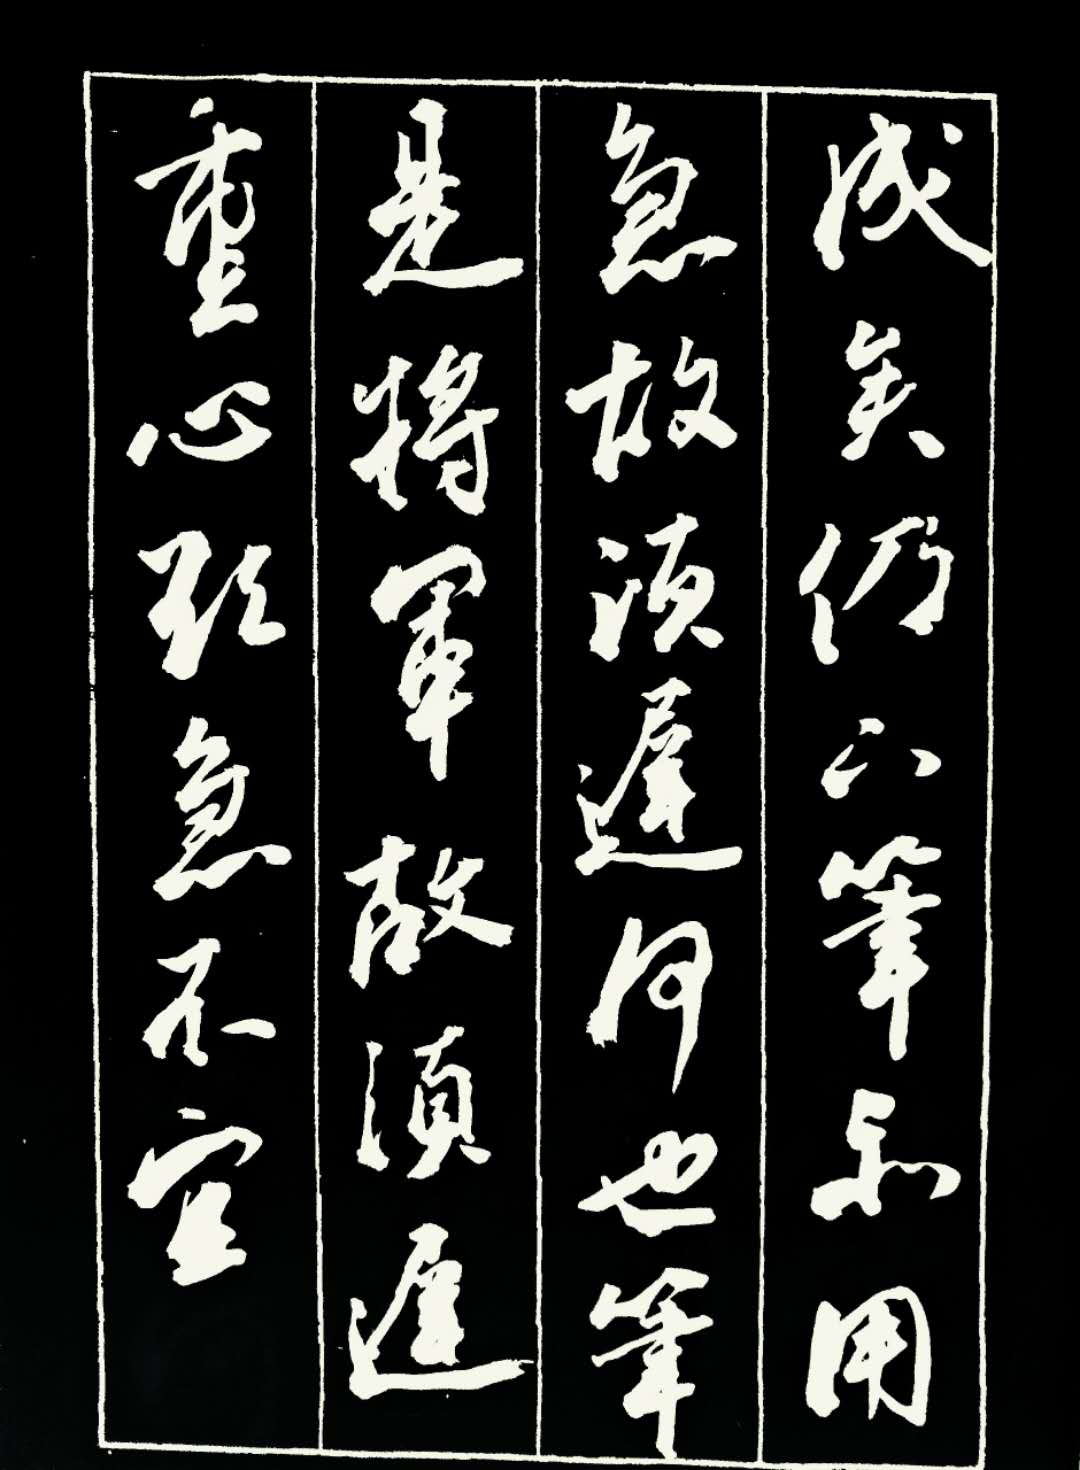 成矣仍下筆不用
急故須遲何也筆
是將軍故須遲
重心欲急不宜